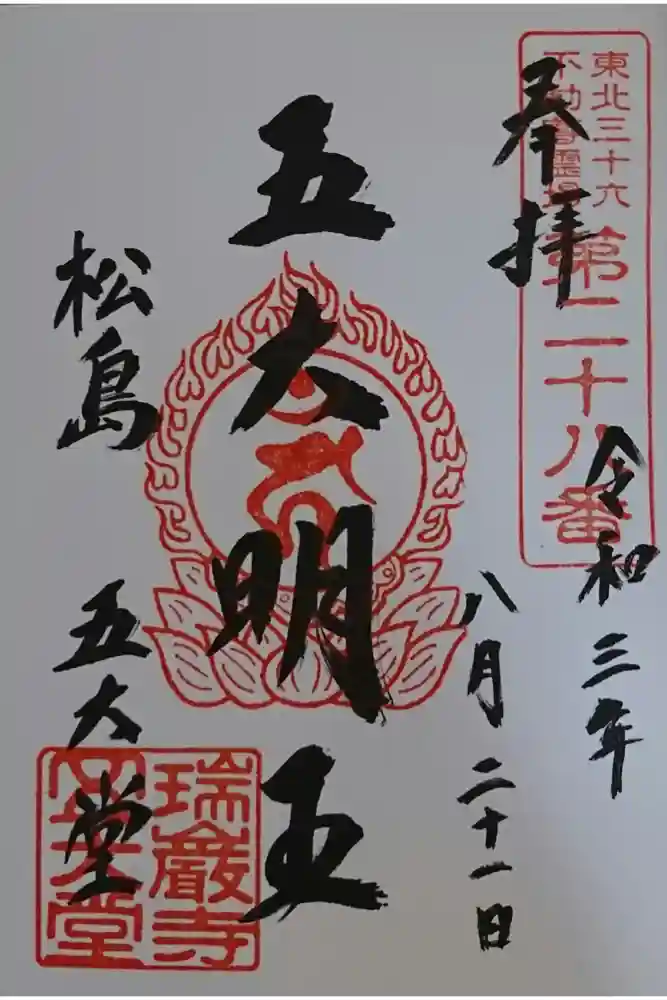 東北三十六
不動尊霊場
第二十八番
奉拝
令和三年
八月二十一日
五大明王
松島
五大堂
瑞巖寺
五大堂